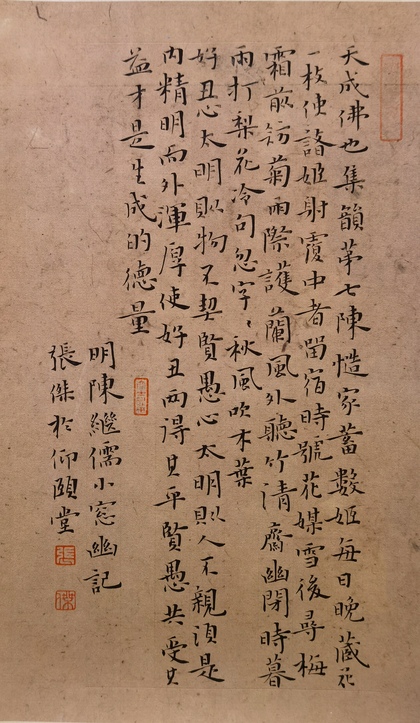 天成佛也集韻第七陳慥家蓄數姬每日晚藏花
一枚使諸姬射覆中者畱宿時號花媒雪後尋梅
霜前訪菊雨際護蘭風外聽竹清齋幽閉時暮
雨打梨花冷句忽字、秋風吹木葉
好丑心太明則物不契賢愚心太明則人不親須是
内精明而外渾厚使好丑兩得其平賢愚共受其
益才是生成的德量
明陳繼儒小窓幽記
張傑於仰頤堂
張
傑